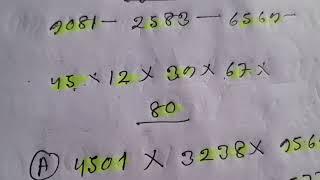 9081- 2583 - 6569-
45 × 12 × 39 × 67 ×
80
(A) 4501 × 3238 ×